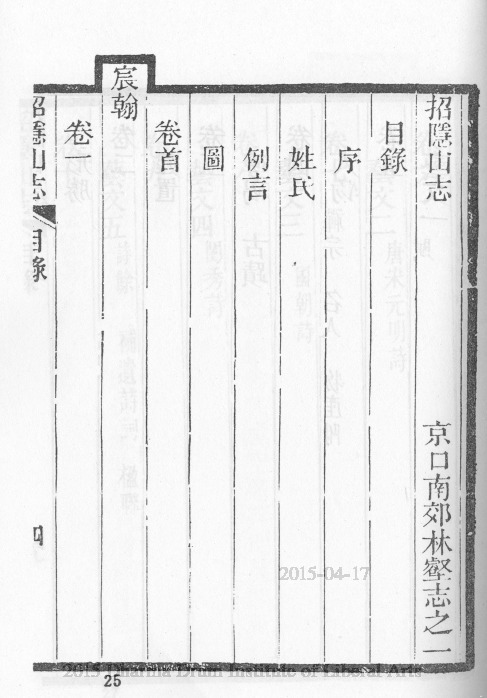 招隱山志　京口南郊林壑志之一
目錄
序
姓氏
例言
圖
卷首
宸翰
卷一
招隱山志　目錄　四
2015-04-17
2015 Dharma Drum Institute of Liberal Arts
25